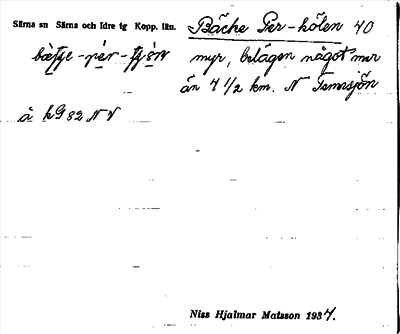 Särna sn Särna och Idre tg Kopp. län.
Bäcke Per-kölen 40
bättje-pèr-tjö̀ln
myr, belägen något mer
än 4 1/2 km. N Temnsjön
å kG 82 NV
Niss Hjalmar Matsson 1934.